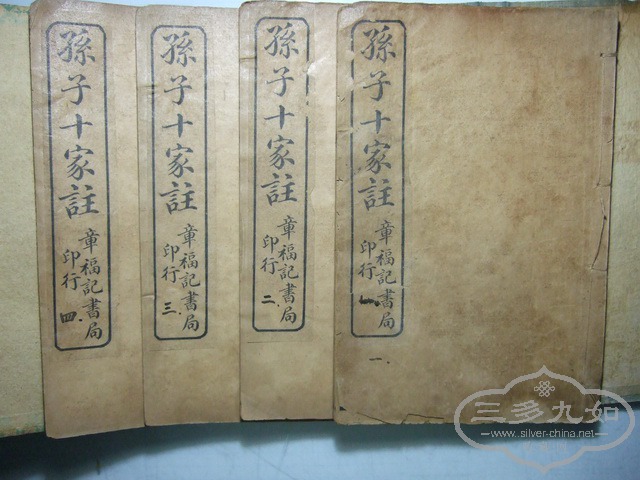 孫子十家註
章福記書局
印行
一
一
孫子十家註
章福記書局
印行
二
孫子十家註
章福記書局
印行
三
孫子十家註
章福記書局
印行
四
三多九如
www.silver-china.net